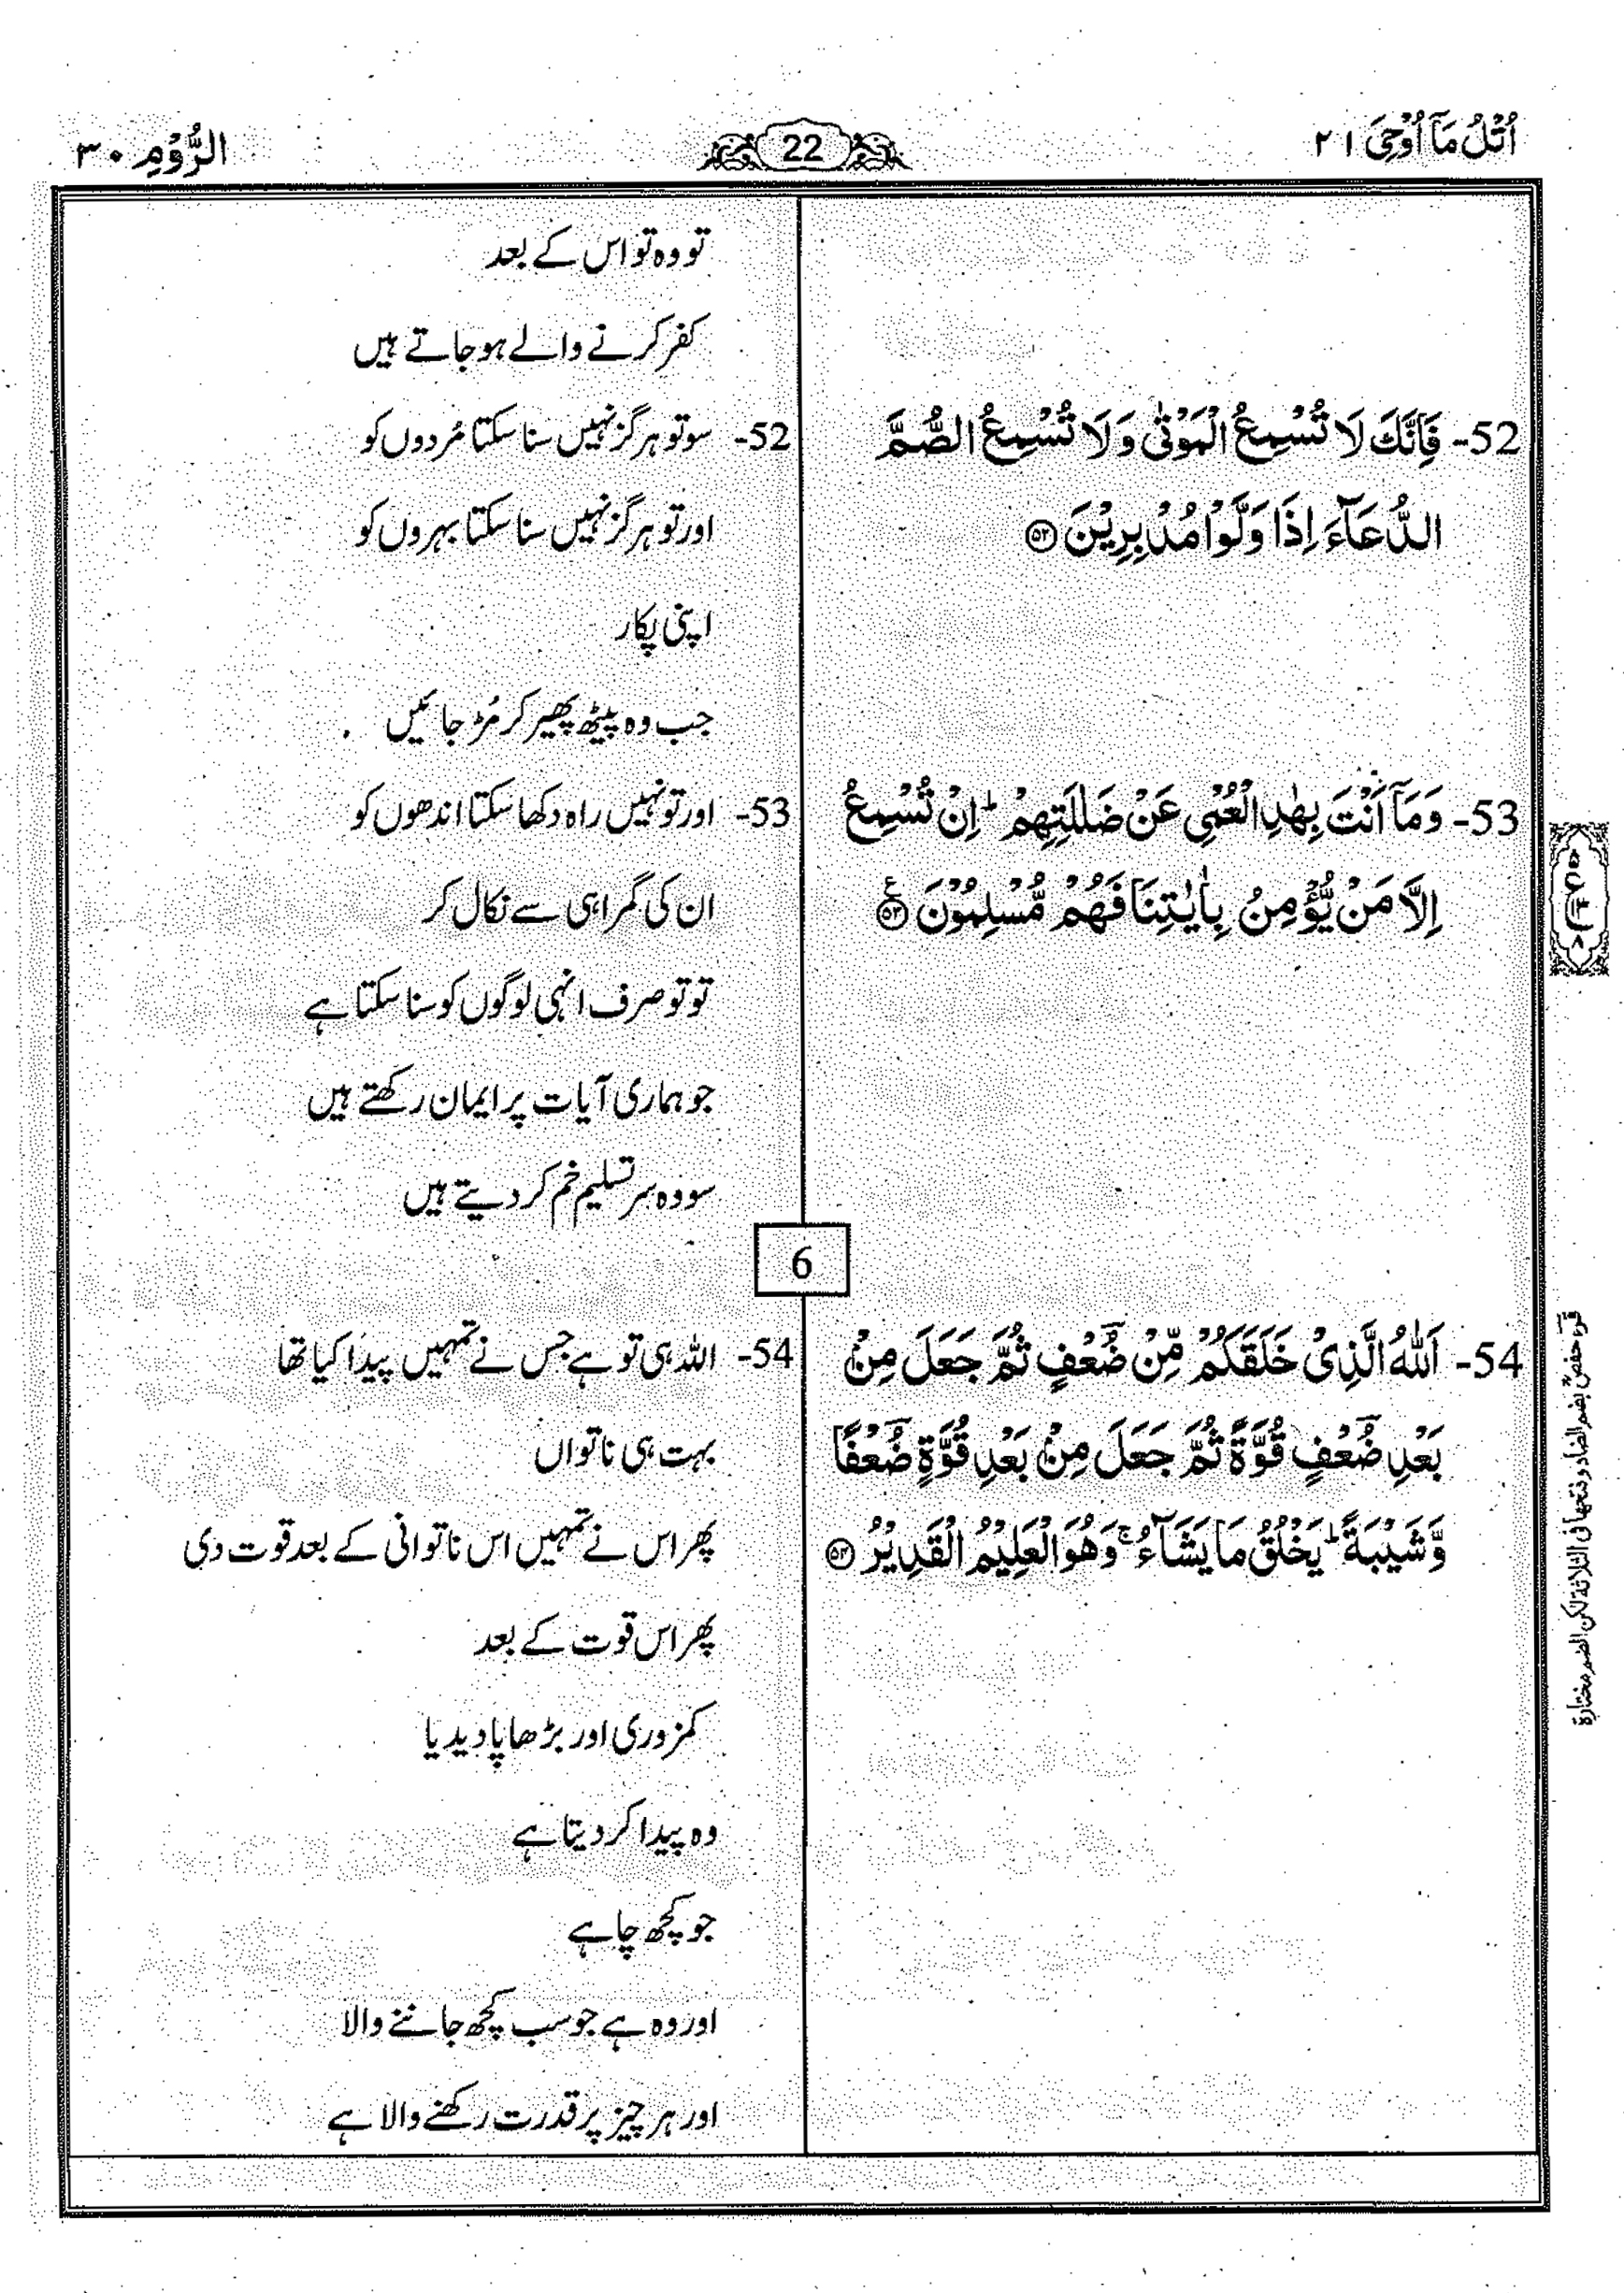 اُتْلُ مَآ اُوْحِیَ ۲۱
22
الرُّوْمِ ۳۰
تو وہ تو اس کے بعد
کفر کرنے والے ہو جاتے ہیں
52- فَاِنَّكَ لَا تُسْمِعُ الْمَوْتٰی وَلَا تُسْمِعُ الصُّمَّ
الدُّعَآءَ اِذَا وَلَّوْا مُدْبِرِیْنَ ﴿۵۲﴾
52- سو تو ہرگز نہیں سنا سکتا مُردوں کو
اور تو ہرگز نہیں سنا سکتا بہروں کو
اپنی پکار
جب وہ پیٹھ پھیر کر مُڑ جائیں
53- وَمَآ اَنْتَ بِهٰدِ الْعُمْیِ عَنْ ضَلٰلَتِهِمْ ؕ اِنْ تُسْمِعُ
اِلَّا مَنْ یُّؤْمِنُ بِاٰیٰتِنَا فَهُمْ مُّسْلِمُوْنَ ﴿۵۳﴾ ع
53- اور تو نہیں راہ دکھا سکتا اندھوں کو
ان کی گمراہی سے نکال کر
تو تو صرف انہی لوگوں کو سنا سکتا ہے
جو ہماری آیات پر ایمان رکھتے ہیں
سو وہ سر تسلیم خم کر دیتے ہیں
6
54- اَللّٰهُ الَّذِیْ خَلَقَكُمْ مِّنْ ضُؔعْفٍ ثُمَّ جَعَلَ مِنْۢ
بَعْدِ ضُؔعْفٍ قُوَّةً ثُمَّ جَعَلَ مِنْۢ بَعْدِ قُوَّةٍ ضُؔعْفًا
وَّشَیْبَةً ؕ یَخْلُقُ مَا یَشَآءُ ۚ وَهُوَ الْعَلِیْمُ الْقَدِیْرُ ﴿۵۴﴾
54- اللہ ہی تو ہے جس نے تمہیں پیدا کیا تھا
بہت ہی ناتواں
پھر اس نے تمہیں اس ناتوانی کے بعد قوت دی
پھر اس قوت کے بعد
کمزوری اور بڑھاپا دیدیا
وہ پیدا کر دیتا ہے
جو کچھ چاہے
اور وہ ہے جو سب کچھ جاننے والا
اور ہر چیز پر قدرت رکھنے والا ہے
ع
قرأ حفص بضم الضاد و فتحها فی الثلاثة لکن الضم مختارة